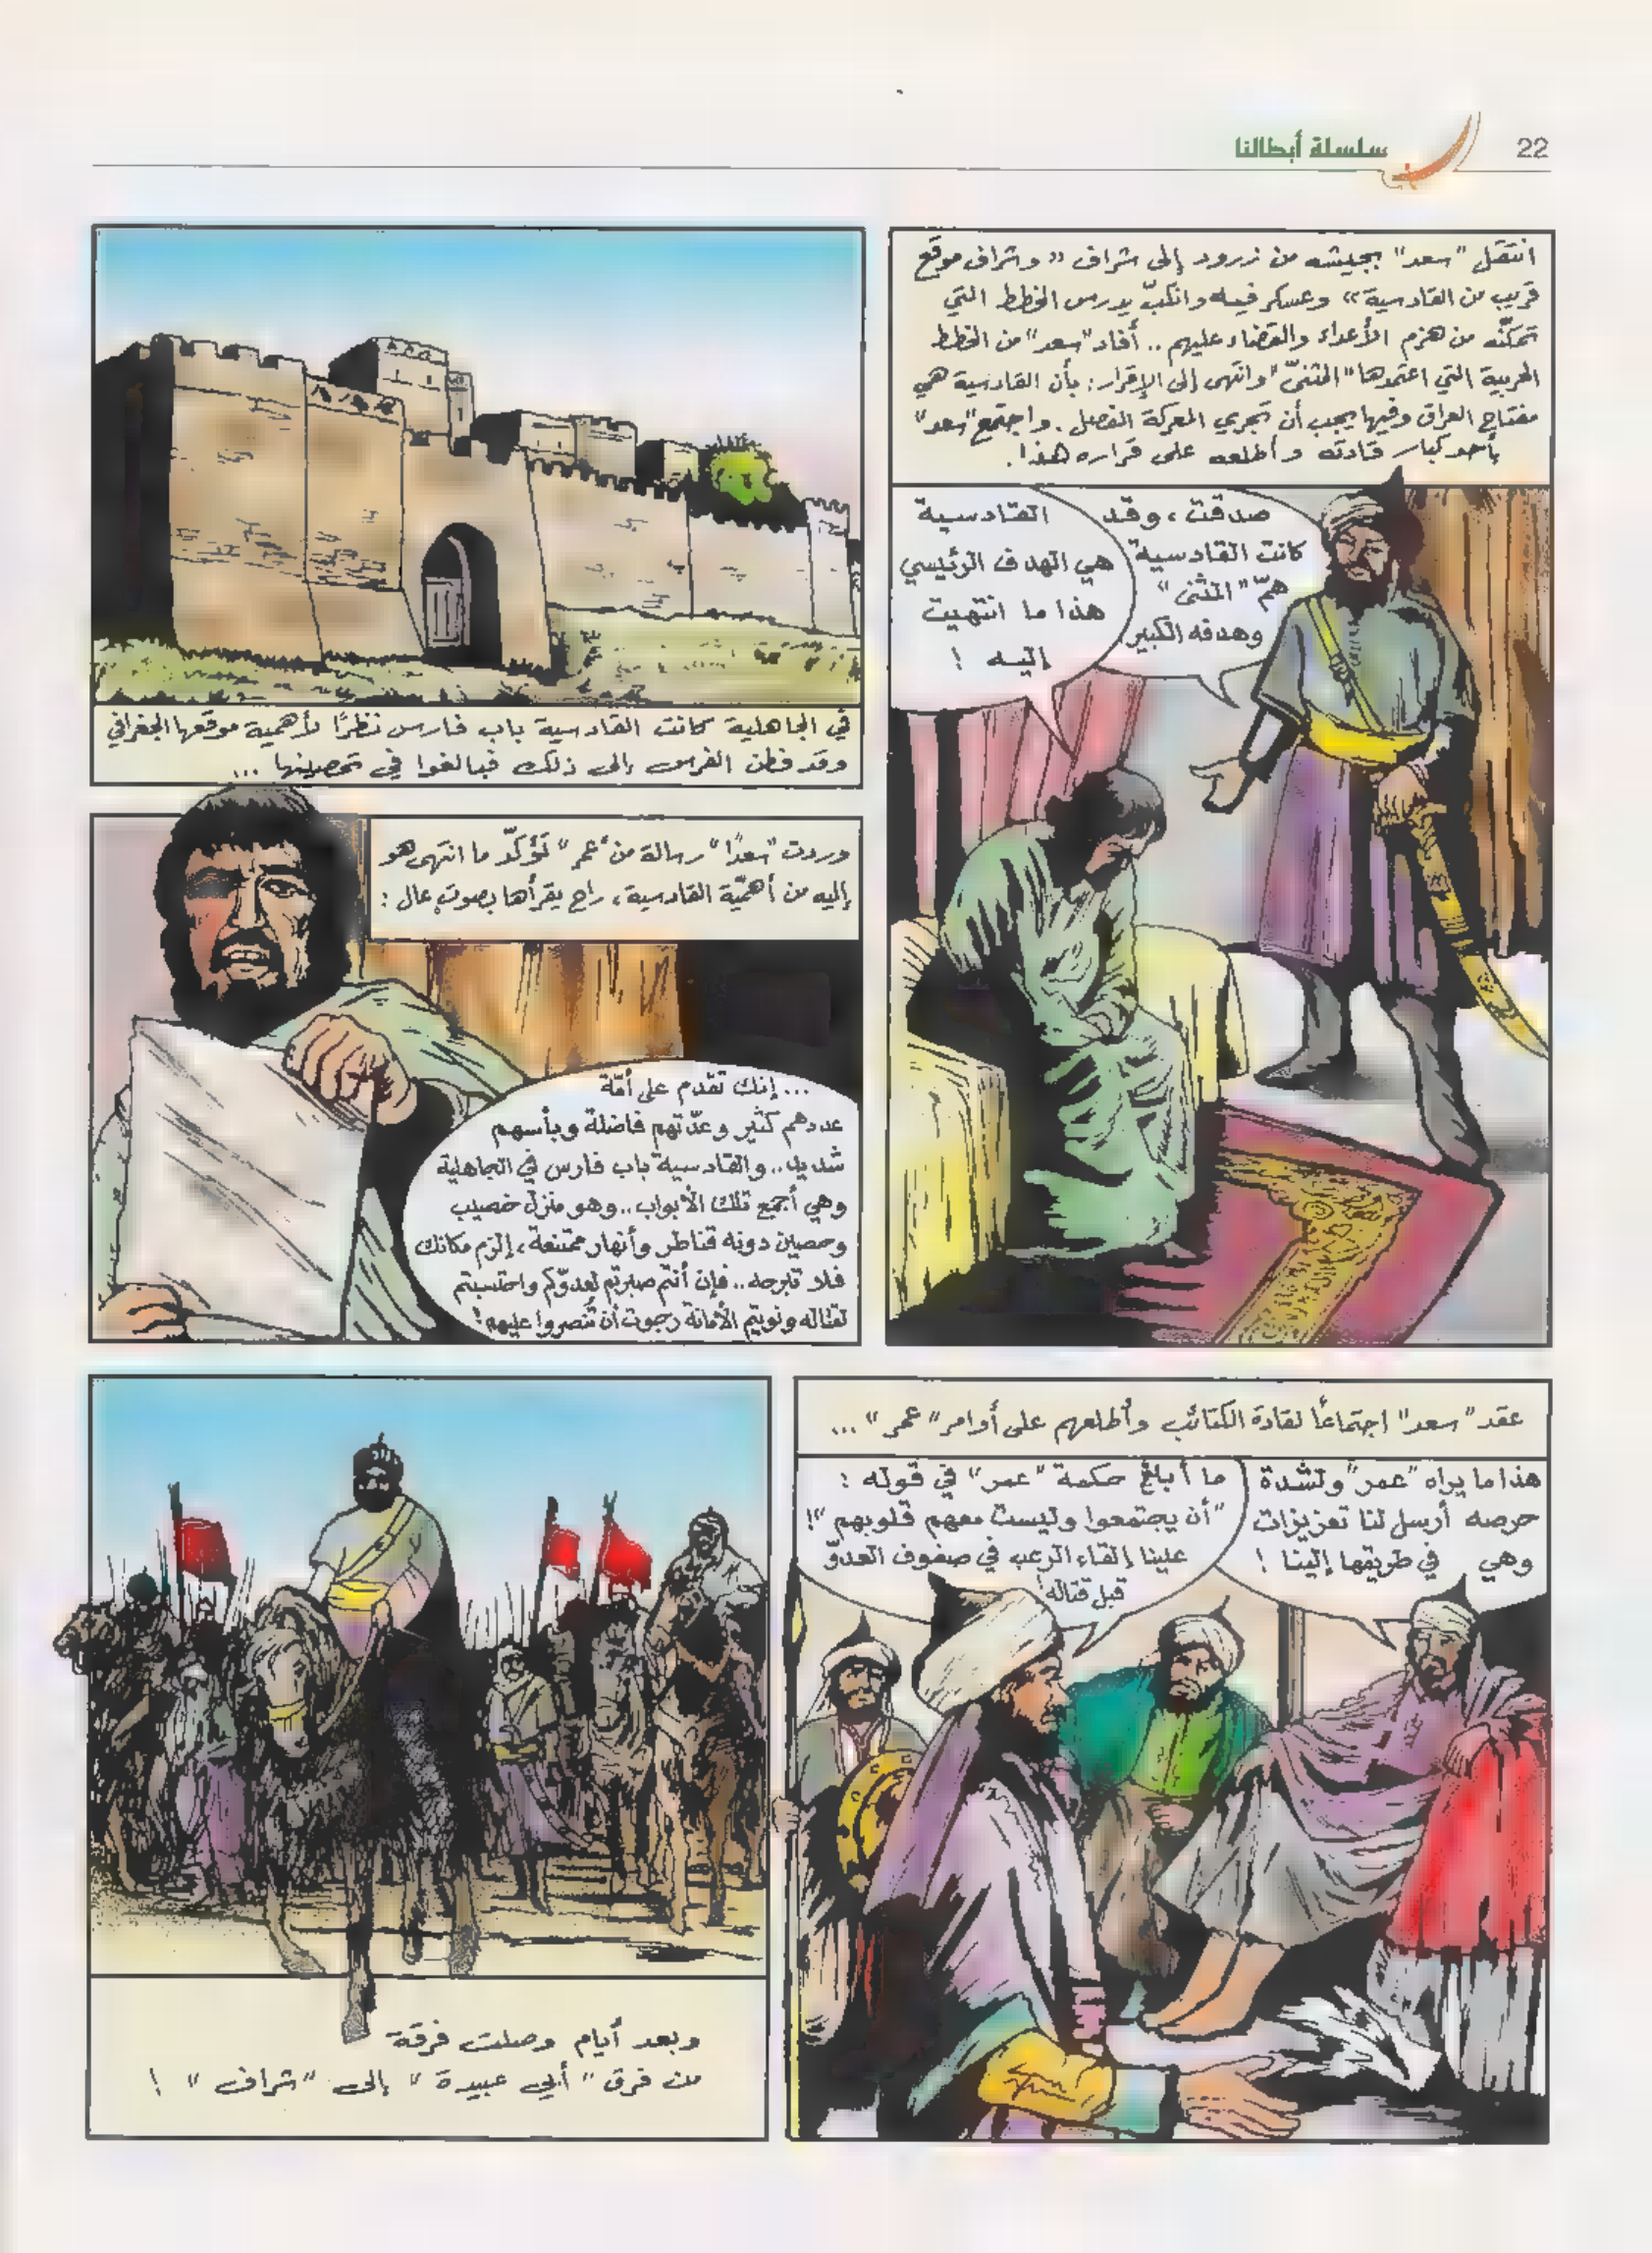 22
سلسلة أبطالنا
انتقل "سعد" بجيشه من زرود إلى شراف «وشراف موقع
قريب من القادسية» وعسكر فيه وانكبّ يدرس الخطط التي
تمكّنه من هزم الأعداء والقضاء عليهم .. أفاد "سعد" من الخطط
الحربية التي اعتمدها "المثنىّ" وانتهى إلى الإقرار : بأن القادسية هي
مفتاح العراق وفيها يجب أن تجري المعركة الفصل . واجتمع "سعد"
بأحد كبار قادته وأطلعه على قراره هذا .
القادسية
هي الهدف الرئيسي
هذا ما انتهيت
إليه !
صدقت ، وقد
كانت القادسية
همّ "المثنى"
وهدفه الكبير
في الجاهلية كانت القادسية باب فارس نظرًا لأهمية موقعها الجغرافي
وقد فطن الفرس إلى ذلك فبالغوا في تحصينها ...
وردت "سعدًا" رسالة من "عمر" تؤكّد ما انتهى هو
إليه من أهمّية القادسية ، راح يقرأها بصوت عال :
... إنك تقدم على أمّة
عددهم كثير وعدّتهم فاضلة وبأسهم
شديد .. والقادسية باب فارس في الجاهلية
وهي أجمع تلك الأبواب .. وهو منزل خصيب
وحصين دونه قناطر وأنهار ممتنعة ، إلزم مكانك
فلا تبرحه .. فإن أنتم صبرتم لعدوّكم واحتسبتم
لقتاله ونويتم الأمانة رجوت أن تُنصروا عليهم !
عقد "سعد" اجتماعًا لقادة الكتائب وأطلعهم على أوامر "عمر" ...
هذا ما يراه "عمر" ولشدة
حرصه أرسل لنا تعزيزات
وهي في طريقها إلينا !
ما أبلغ حكمة "عمر" في قوله :
"أن يجتمعوا وليست معهم قلوبهم" !
علينا إلقاء الرعب في صفوف العدوّ
قبل قتاله !
وبعد أيام وصلت فرقة
من فرق "أبي عبيدة" إلى "شراف" !